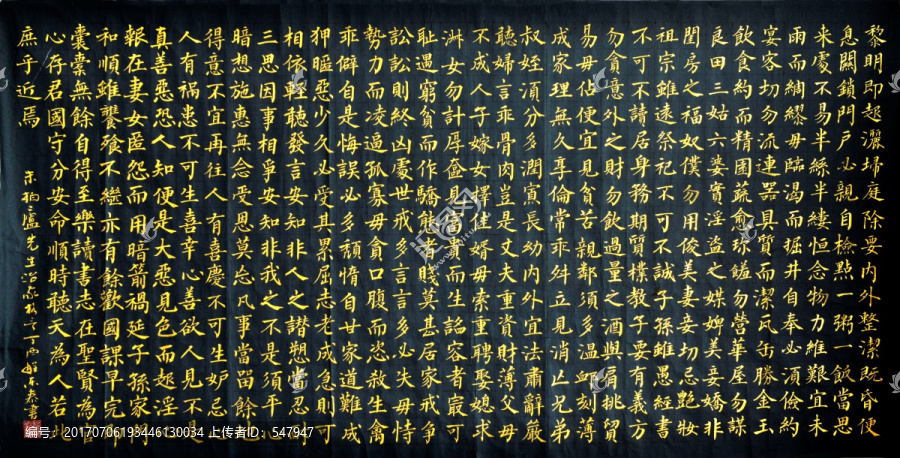 黎明即起灑埽庭除要內外整潔既昏便
息關鎖門戶必親自檢點一粥一飯當思
來處不易半絲半縷恒念物力維艱宜未
雨而綢繆毋臨渴而掘井自奉必須儉約
宴客切勿流連器具質而潔瓦缶勝金玉
飲食約而精園蔬愈珍饈勿營華屋勿謀
良田三姑六婆實淫盜之媒婢美妾嬌非
閨房之福奴僕勿用俊美妻妾切忌艷妝
祖宗雖遠祭祀不可不誠子孫雖愚經書
不可不讀居身務期質樸教子要有義方
勿貪意外之財勿飲過量之酒與肩挑貿
易毋佔便宜見貧苦親鄰須多溫卹刻薄
成家理無久享倫常乖舛立見消亡兄弟
叔姪須分多潤寡長幼內外宜法肅辭嚴
聽婦言乖骨肉豈是丈夫重資財薄父母
不成人子嫁女擇佳婿毋索重聘娶媳求
淑女勿計厚奩見富貴而生諂容者最可
恥遇窮貧而作驕態者賤莫甚居家戒爭
訟訟則終凶處世戒多言言多必失毋恃
勢力而凌逼孤寡毋貪口腹而恣殺生禽
乖僻自是悔誤必多頹惰自甘家道難成
狎暱惡少久必受其累屈志老成急則可
相依輕聽發言安知非人之譖愬當忍耐
三思因事相爭安知非我之不是須平心
暗想施惠無念受恩莫忘凡事當留餘地
得意不宜再往人有喜慶不可生妒忌心
人有禍患不可生喜幸心善欲人見不是
真善惡恐人知便是大惡見色而起淫心
報在妻女匿怨而用暗箭禍延子孫家門
和順雖饔飧不繼亦有餘歡國課早完即
囊橐無餘自得至樂讀書志在聖賢為官
心存君國守分安命順時聽天為人若此
庶乎近焉
编号:20170706193446130034 上传者ID:547947